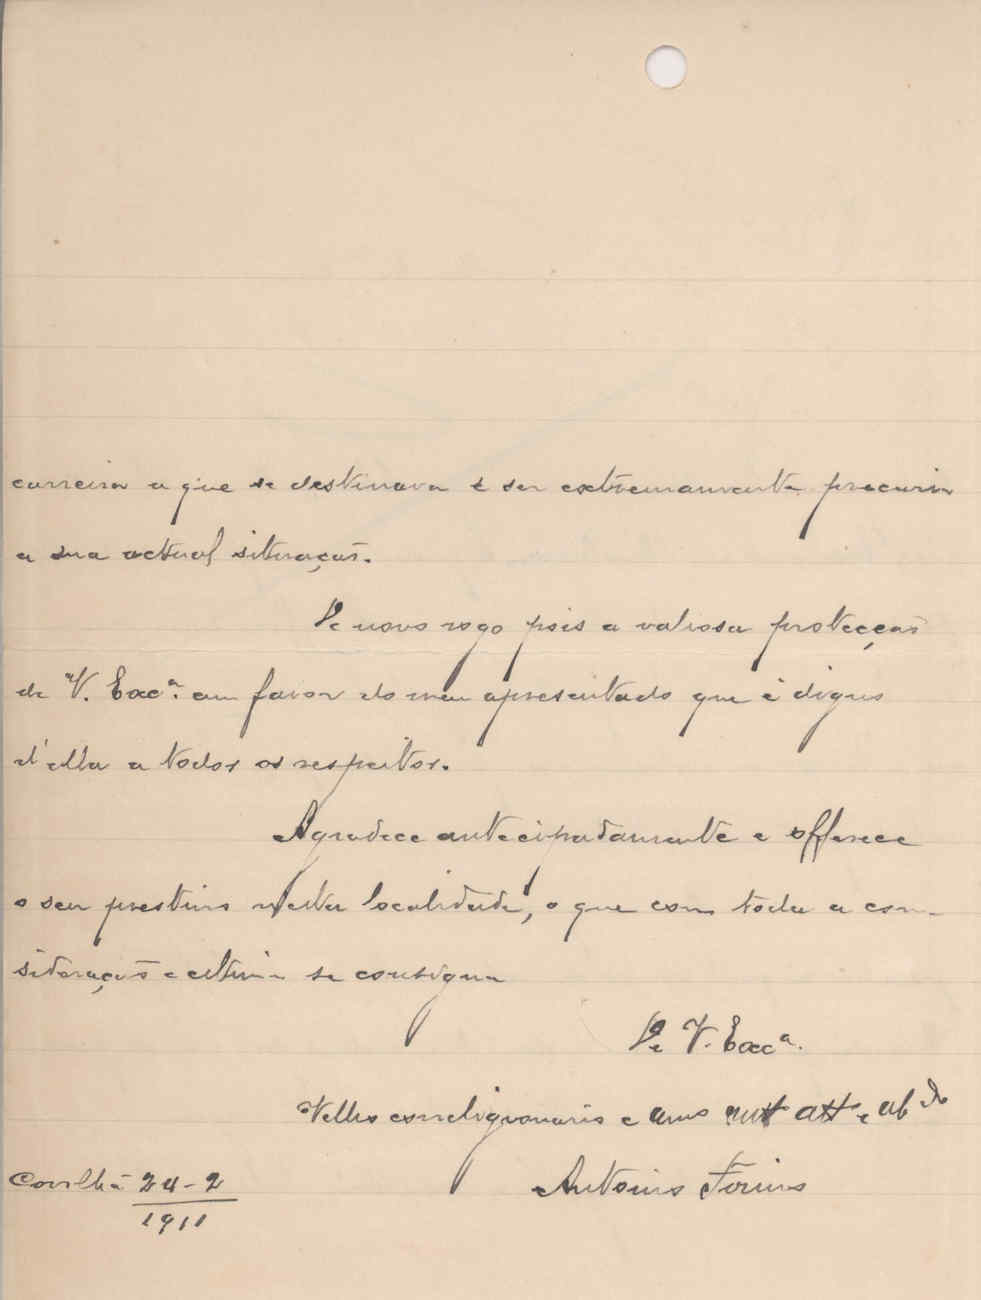 carreira a que se destinava é ser extremamente precaria
a sua actual situação.
De novo rogo pois a valiosa protecção
de V. Exc.ª em favor do meu apresentado que é digno
d'ella a todos os respeitos.
Agradece antecipadamente e offerece
o seu prestimo nesta localidade, o que com toda a con-
sideração e estima se consigna
De V. Exc.ª
Velho correligionario e amo mtt att e
Covilhã 24-2
1911
Antonio